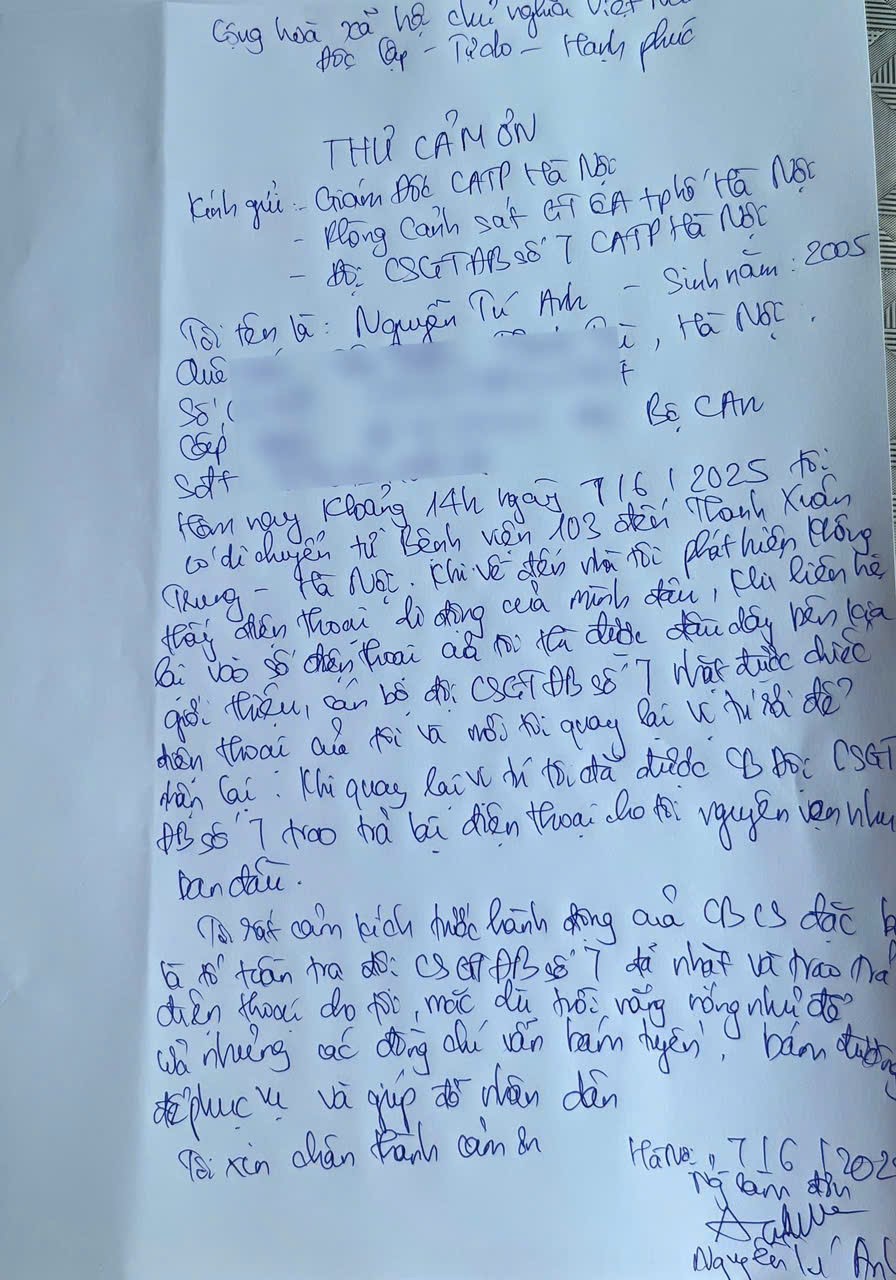 Cộng hoà xã hội chủ nghĩa Việt
Độc lập - Tự do - Hạnh phúc
THƯ CẢM ƠN
Kính gửi: - Giám Đốc CATP Hà Nội
- Phòng Cảnh sát GT CA tphố Hà Nội
- Đội CSGTĐB số 7 CATP Hà Nội
Tôi tên là: Nguyễn Tú Anh - Sinh năm: 2005
Quê , Hà Nội.
Số
Cấp Bộ CAN
Sđt
Hôm nay khoảng 14h ngày 7/6/2025 tôi
có di chuyển từ Bệnh viện 103 đến Thanh Xuân
Trung - Hà Nội. Khi về đến nhà tôi phát hiện không
thấy điện thoại di động của mình đâu, khi liên hệ
lại vào số điện thoại của tôi thì được đầu dây bên kia
giới thiệu, cán bộ đội CSGTĐB số 7 nhặt được chiếc
điện thoại của tôi và mời tôi quay lại vị trí rơi để
nhận lại. Khi quay lại vị trí tôi đã được CB Đội CSGT
ĐB số 7 trao trả lại điện thoại cho tôi nguyên vẹn như
ban đầu.
Tôi rất cảm kích trước hành động của CBCS đặc
là tổ tuần tra đội CSGTĐB số 7 đã nhặt và trao trả
điện thoại cho tôi, mặc dù trời nắng nóng như đổ
lửa nhưng các đồng chí vẫn bám tuyến, bám đường
để phục vụ và giúp đỡ nhân dân
Tôi xin chân thành cảm ơn
Hà Nội, 7/6/202
Ng làm đơn
Nguyễn Tú Anh